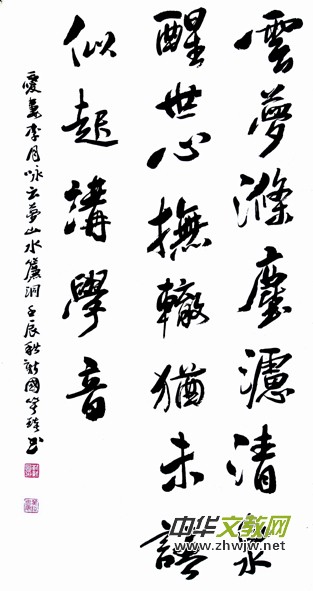 雲夢滌塵濾清泉
醒世心撫轍猶未語
似起講學音
李月咏云夢山水簾洞壬辰秋國书
中华文教网
www.zhwjw.net